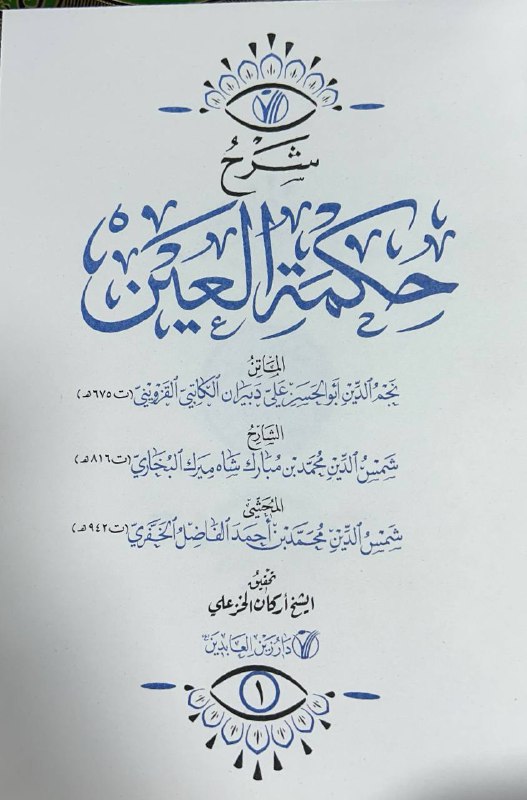 شرح
حكمة العين
الماتن
نجم الدين أبو الحسن علي دبيران الكاتبي القزويني (ت ٦٧٥هـ)
الشارح
شمس الدين محمد بن مبارك شاه ميرك البخاري (ت ٨١٦هـ)
المحشي
شمس الدين محمد بن أحمد الفاضل الخفري (ت ٩٤٢هـ)
تحقيق
الشيخ أركان الخزعلي
دار زين العابدين
١